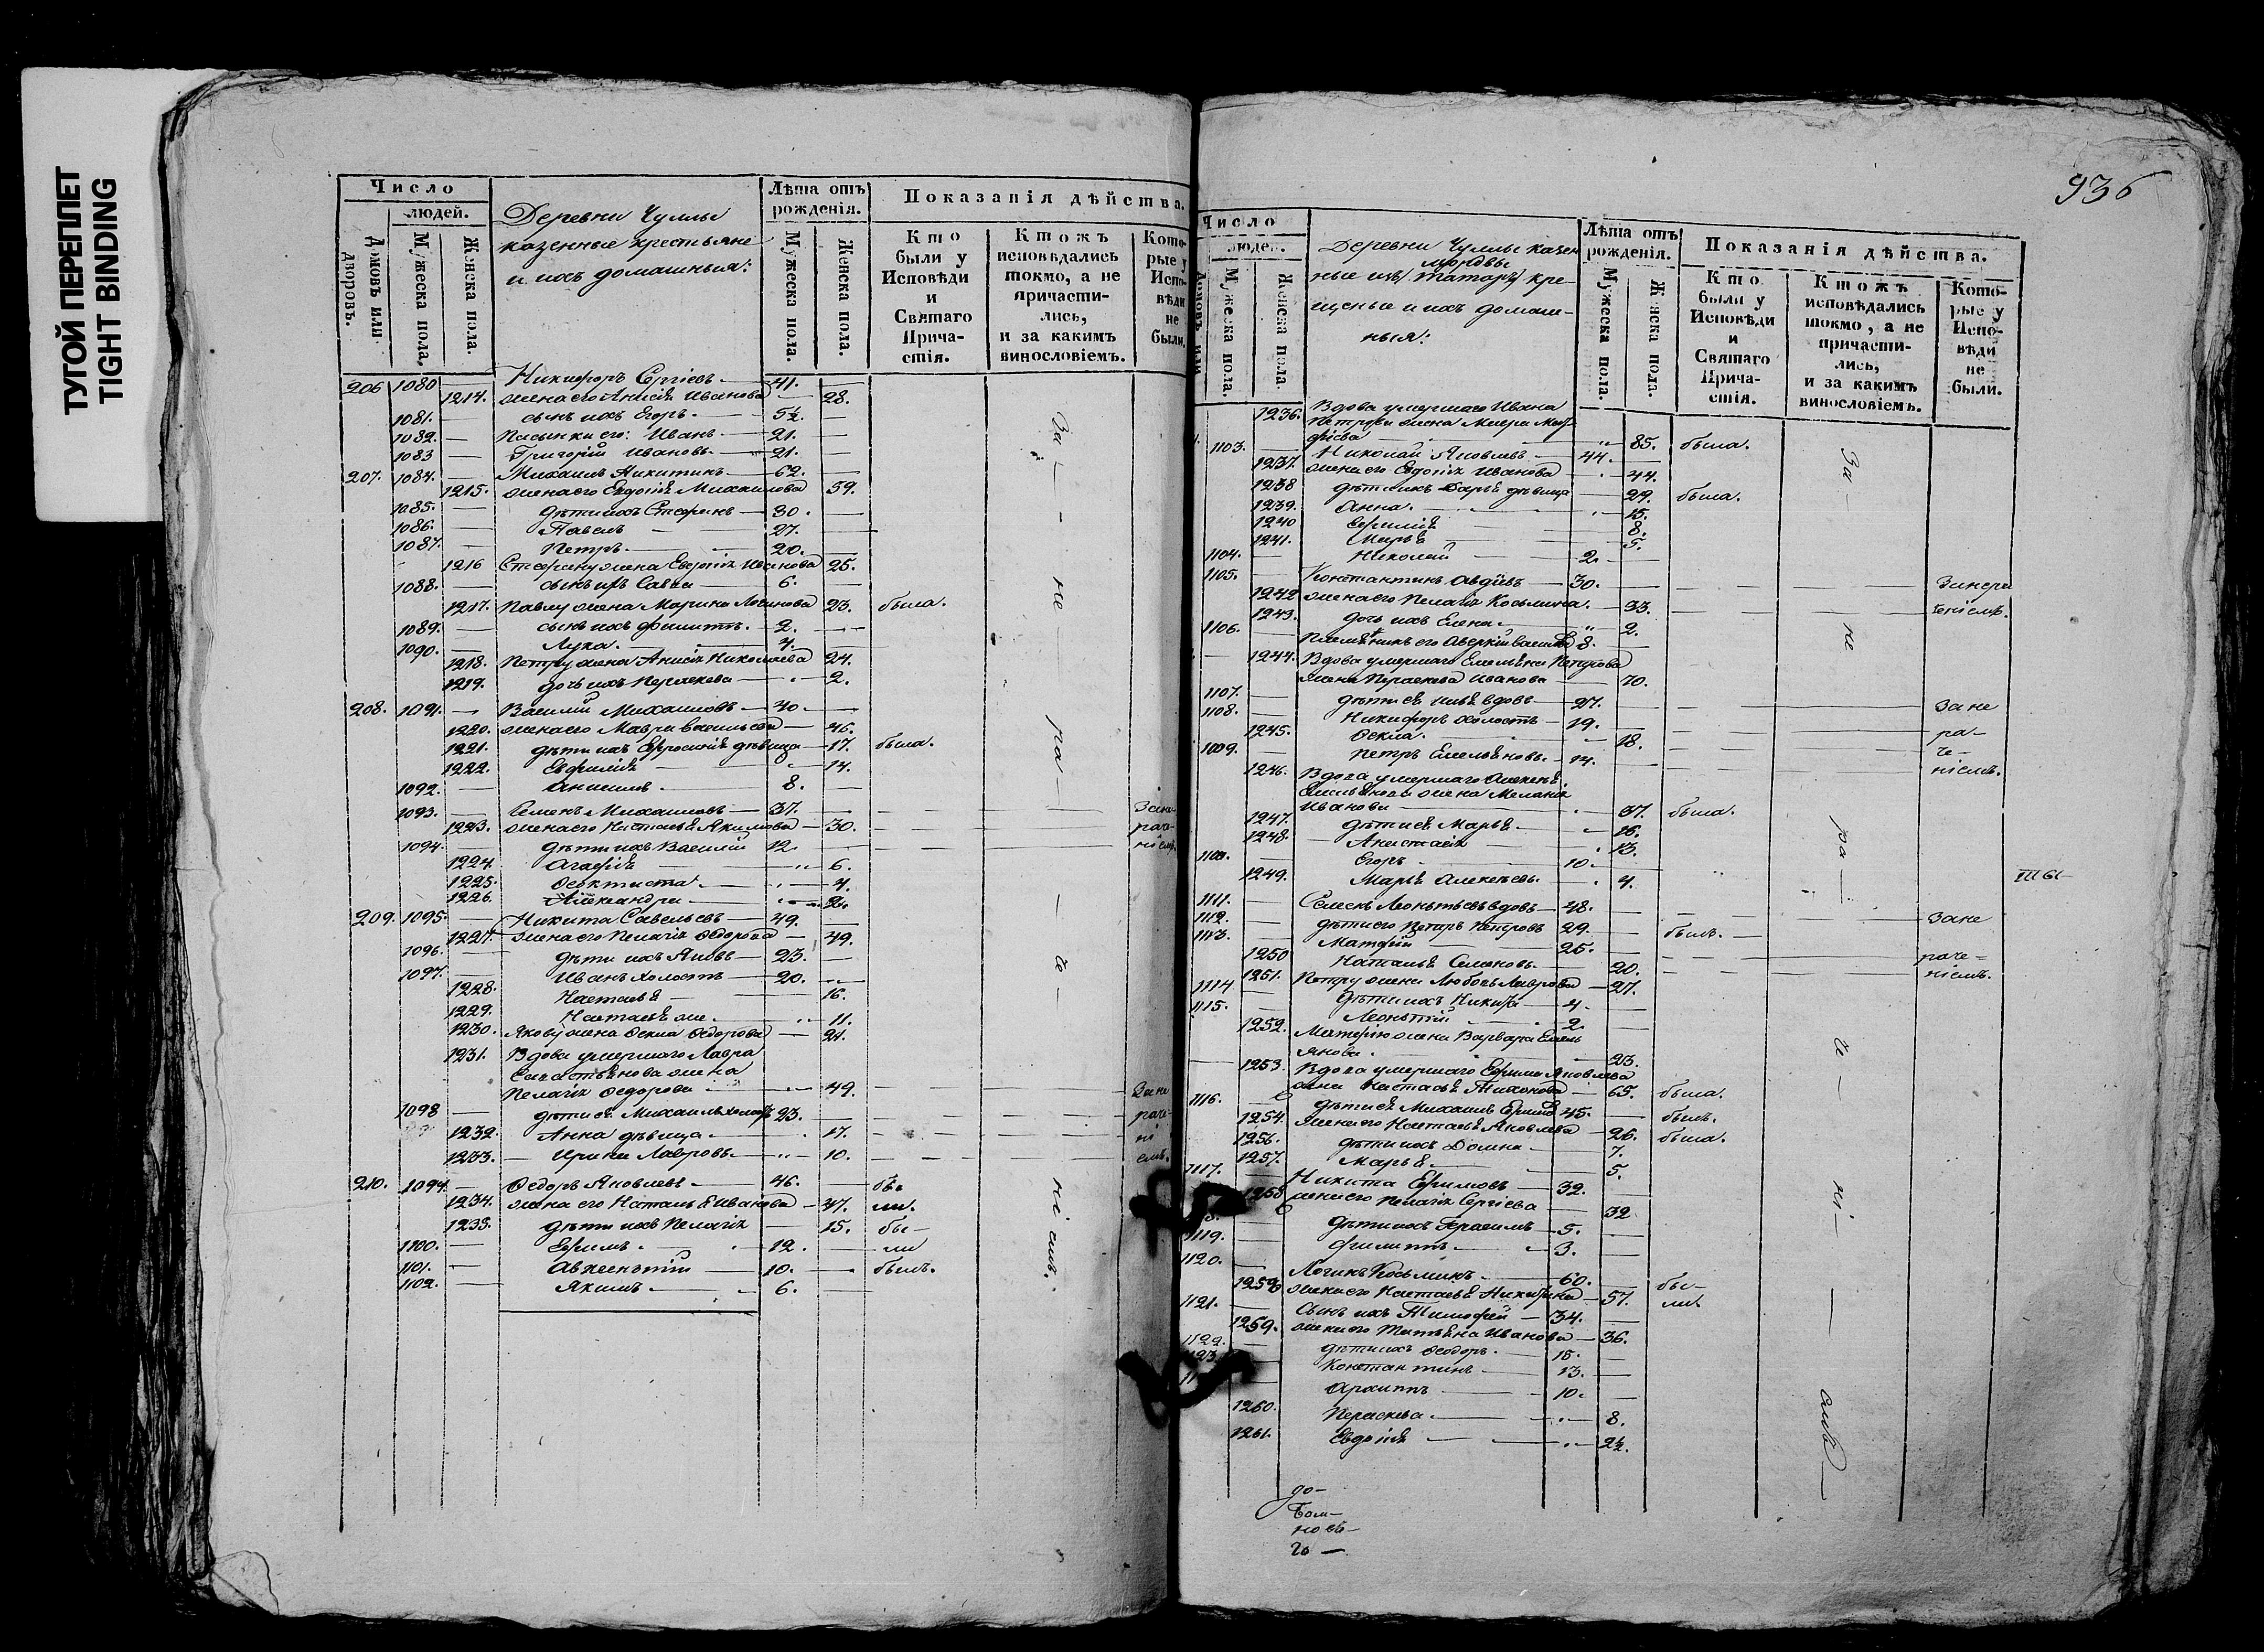 ТУГОЙ ПЕРЕПЛЕТ
TIGHT BINDING
Число
людей.
Домовъ или дворовъ.
Мужеска пола.
Женска пола.
Деревни Чуллы
казенные крестьяне
и ихъ домашныя:
Лѣта отъ рожденія.
Мужеска пола.
Женска пола.
Показанія дѣйства.
Кто были у Исповѣди и Святаго Причастія.
Ктожъ исповѣдались токмо, а не причастились, и за какимъ винословіемъ.
Которые у Исповѣди не были.
206 1080 — Никифоръ Сергіевъ — 41. —
1214. жена его Анисія Иванова — 28.
1081. — сынъ ихъ Егоръ — 5½. —
1082. — Пасынки его: Иванъ — 21. —
1083 — Григорій Ивановы — 21. —
207. 1084. — Михаилъ Никитинъ — 62. —
1215. жена его Евдокія Михаилова 59.
1085. — дѣти ихъ Стефанъ — 30. —
1086. — Павелъ — 27. —
1087. — Петръ — 20. —
1216 Стефану жена Евдокія Иванова 25.
1088. — сынъ ихъ Савва — 6. —
1217. Павлу жена Марина Логинова 23. была.
1089. — сынъ ихъ Филиппъ. — 2. —
1090. — Лука. — 4. —
1218. Петру жена Анисія Николаева 24.
1219. дочь ихъ Параскева — 2.
208. 1091. — Василій Михаиловъ — 40. —
1220. жена его Мавра Васильева — 46.
1221. дѣти ихъ Евфросинія дѣвица — 17. была.
1222. Евфимія — 14.
1092. — Анисимъ. — 8. —
1093. — Семенъ Михаиловъ — 37. —
1223. жена его Настасья Якимова — 30. —
1094. — дѣти ихъ Василій 12. —
1224. Агафія — 6.
1225. Феоктиста. — 4.
1226. Александра — 2½.
209. 1095. — Никита Савельевъ — 49. —
1227. жена его Пелагія Федорова — 49.
1096. — дѣти ихъ Яковъ — 23. —
1097. — Иванъ холостъ — 20. —
1228. Настасья — 16.
1229. Настасья же. — 11.
1230. Якову жена Фекла Федорова — 21.
1231. Вдова умершаго Лавра
Севастьянова жена
Пелагія Федорова — 49. —
1098 — дѣти ея Михаилъ холостъ 23. —
1232. Анна дѣвица. — 17. —
1233. — Ирина Лавровы. — 10. —
210. 1099. — Федоръ Яковлевъ — 46. — бы
1234. жена его Наталья Иванова — 47. ли.
1235. дѣти ихъ Пелагія — 15. бы-
1100. — Ефимъ. — 12. — ли
1101. — Авксентій — 10. — былъ.
1102. — Якимъ. — 6. —
За — не — ра — че — ніемъ.
936
Число
людей.
Домовъ или
Мужеска пола.
Женска пола.
Деревни Чуллы казен
мордвы
ные изъ татаръ кре-
щеные и ихъ домаш-
ныя:
Лѣта отъ рожденія.
Мужеска пола.
Женска пола.
Показанія дѣйства.
Кто были у Исповѣди и Святаго Причастія.
Ктожъ исповѣдались токмо, а не причастились, и за какимъ винословіемъ.
Которые у Исповѣди не были.
1236. Вдова умершаго Ивана
Петрова жена Мавра Мат-
фіева — 85. была.
1103. — Николай Яковлевъ — 44. —
1237. жена его Евдокія Иванова — 44.
1238 дѣти ихъ Дарья дѣвица — 29. была.
1239. Анна. — 15.
1240 Евфимія — 8.
1241. Марья — 5.
1104. — Николай — 2. —
1105. — Константинъ Авдіевъ — 30. —
1242 жена его Пелагія Козьмина. — 33.
1243. дочь ихъ Елена. — 2.
1106. — Племянникъ его Аверкій Васильевъ 8. —
1244. Вдова умершаго Емельяна Петрова
жена Параскева Иванова — 70.
1107. — дѣти ея Илья вдовъ — 27. — Зане
1108. — Никифоръ холостъ — 19. — ра-
1245. Фекла. — 18. — че-
1009. — Петръ Емельяновы. — 14. — ніемъ.
1246. Вдова умершаго Алексея
Емельянова жена Меланія
Иванова — 37. была.
1247. дѣти ея Марья — 16.
1248. Анастасія — 13.
Егоръ — 10. —
1249. Марья Алексеевы. — 4.
1111. — Семенъ Леонтьевъ вдовъ — 48. — Зане
1112. — дѣти его Петръ Петровъ 29. — былъ. —
1113. — Матфій — 25. —
1250 Наталья Семеновы. — 20. — раче-
1251. Петру жена Любовь Лаврова — 27. ніемъ.
1114 — дѣти ихъ Никита — 4. —
1115. — Леонтій — 2. —
1252. Матфію жена Варвара Емель
янова. — 23.
1253. Вдова умершаго Ефима Яковлева
жена Настасья Тихонова — 65. была.
1116. — дѣти ея Михаилъ Ефимовъ 45. — былъ.
1254. жена его Настасья Яковлева — 26. была.
1256. дѣти ихъ Домна — 7.
1257. Марья. — 5.
1117. — Никита Ефимовъ — 32. —
1258 жена его Пелагія Сергіева — 32
дѣти ихъ Герасимъ — 5. —
1119. — Филиппъ. — 3. —
1120. — Логинъ Козьминъ. — 60. — бы-
1259 жена его Настасья Никитина — 57. ли.
1121. — Сынъ ихъ Тимофей — 34. —
1259. жена его Татьяна Иванова — 36.
1122. — дѣти ихъ Феодоръ. — 15. —
1123. — Константинъ — 13. —
Архиппъ — 10. —
1260. Параскева. — 8.
1261. Евдокія — 2½.
За — не — ра — че — ні — емъ —
до-